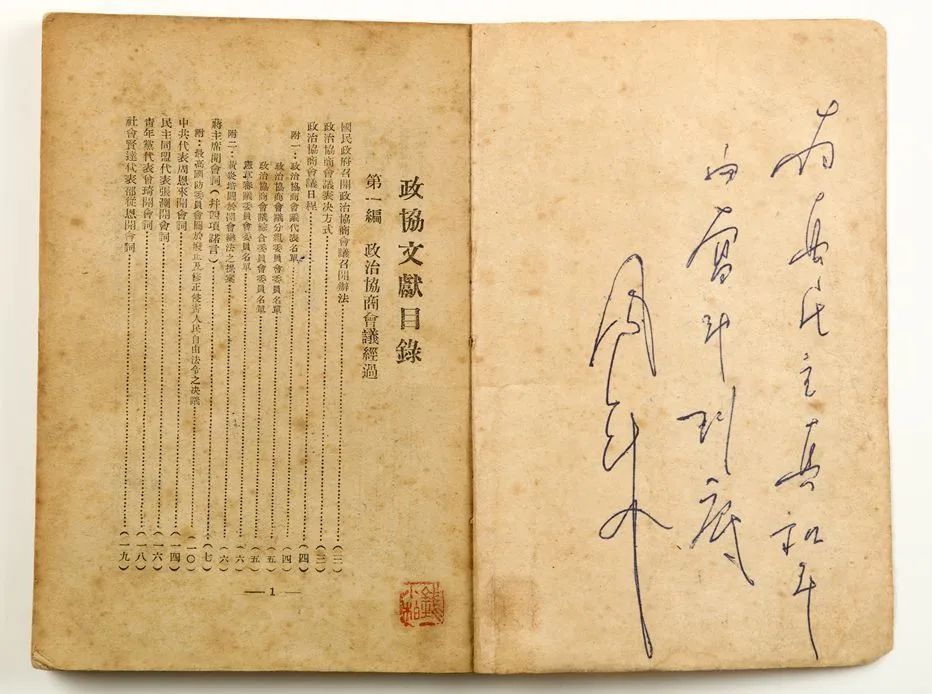 为真民主真和平
而奮斗到底
周恩来
政協文獻目錄
第一編 政治協商會議經過
國民政府召開政治協商會議召開辦法……(二)
政治協商會議表決方式……(三)
政治協商會議日程……(四)
附一：政治協商會議代表名單……(四)
政治協商會議分組委員會委員名單……(五)
政治協商會議綜合委員會委員名單……(五)
憲草審議委員會委員名單……(六)
附二：黃炎培關於開會辦法之提案……(六)
蔣主席開會詞(幷四項諾言)……(七)
附：最高國防委員會關於廢止及修正侵害人民自由法令之決議……(一〇)
中共代表周恩來開會詞……(一四)
民主同盟代表張瀾開會詞……(一六)
青年黨代表曾琦開會詞……(一八)
社會賢達代表邵從恩開會詞……(一九)
— 1 —